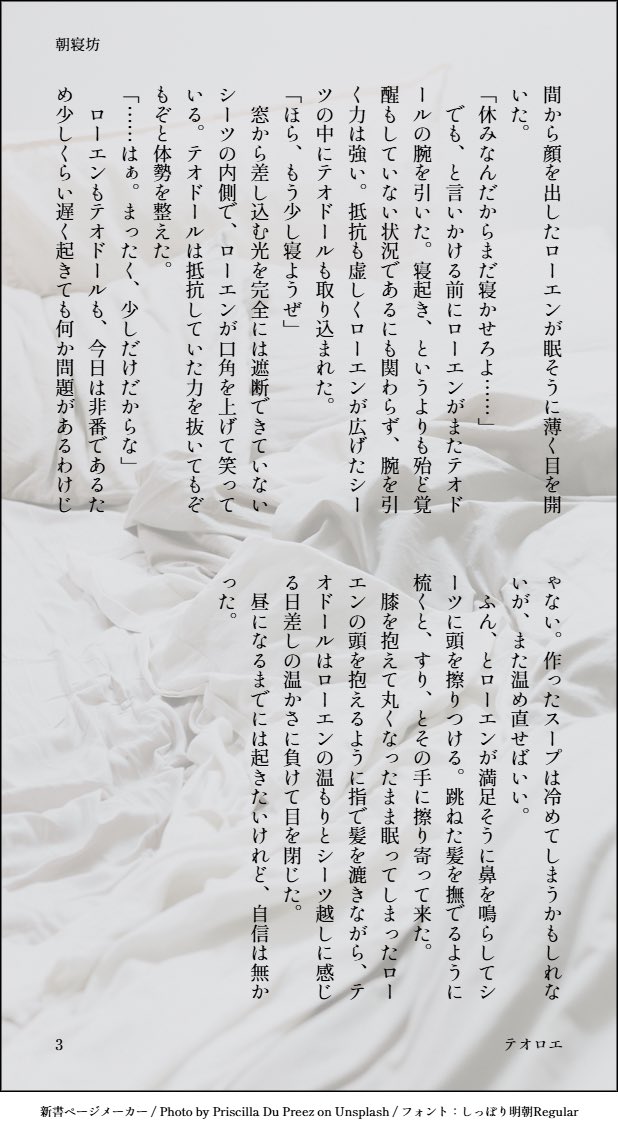 朝寝坊
間から顔を出したローエンが眠そうに薄く目を開
いた。
「休みなんだからまだ寝かせろよ……」
でも、と言いかける前にローエンがまたテオド
ールの腕を引いた。寝起き、というよりも殆ど覚
醒もしていない状況であるにも関わらず、腕を引
く力は強い。抵抗も虚しくローエンが広げたシー
ツの中にテオドールも取り込まれた。
「ほら、もう少し寝ようぜ」
窓から差し込む光を完全には遮断できていない
シーツの内側で、ローエンが口角を上げて笑って
いる。テオドールは抵抗していた力を抜いてもぞ
もぞと体勢を整えた。
「……はぁ。まったく、少しだけだからな」
ローエンもテオドールも、今日は非番であるた
め少しくらい遅く起きても何か問題があるわけじ
ゃない。作ったスープは冷めてしまうかもしれな
いが、また温め直せばいい。
ふん、とローエンが満足そうに鼻を鳴らしてシ
ーツに頭を擦りつける。跳ねた髪を撫でるように
梳くと、すり、とその手に擦り寄って来た。
膝を抱えて丸くなったまま眠ってしまったロー
エンの頭を抱えるように指で髪を漉きながら、テ
オドールはローエンの温もりとシーツ越しに感じ
る日差しの温かさに負けて目を閉じた。
昼になるまでには起きたいけれど、自信は無か
った。
3
テオロエ
新書ページメーカー / Photo by Priscilla Du Preez on Unsplash / フォント：しっぽり明朝Regular